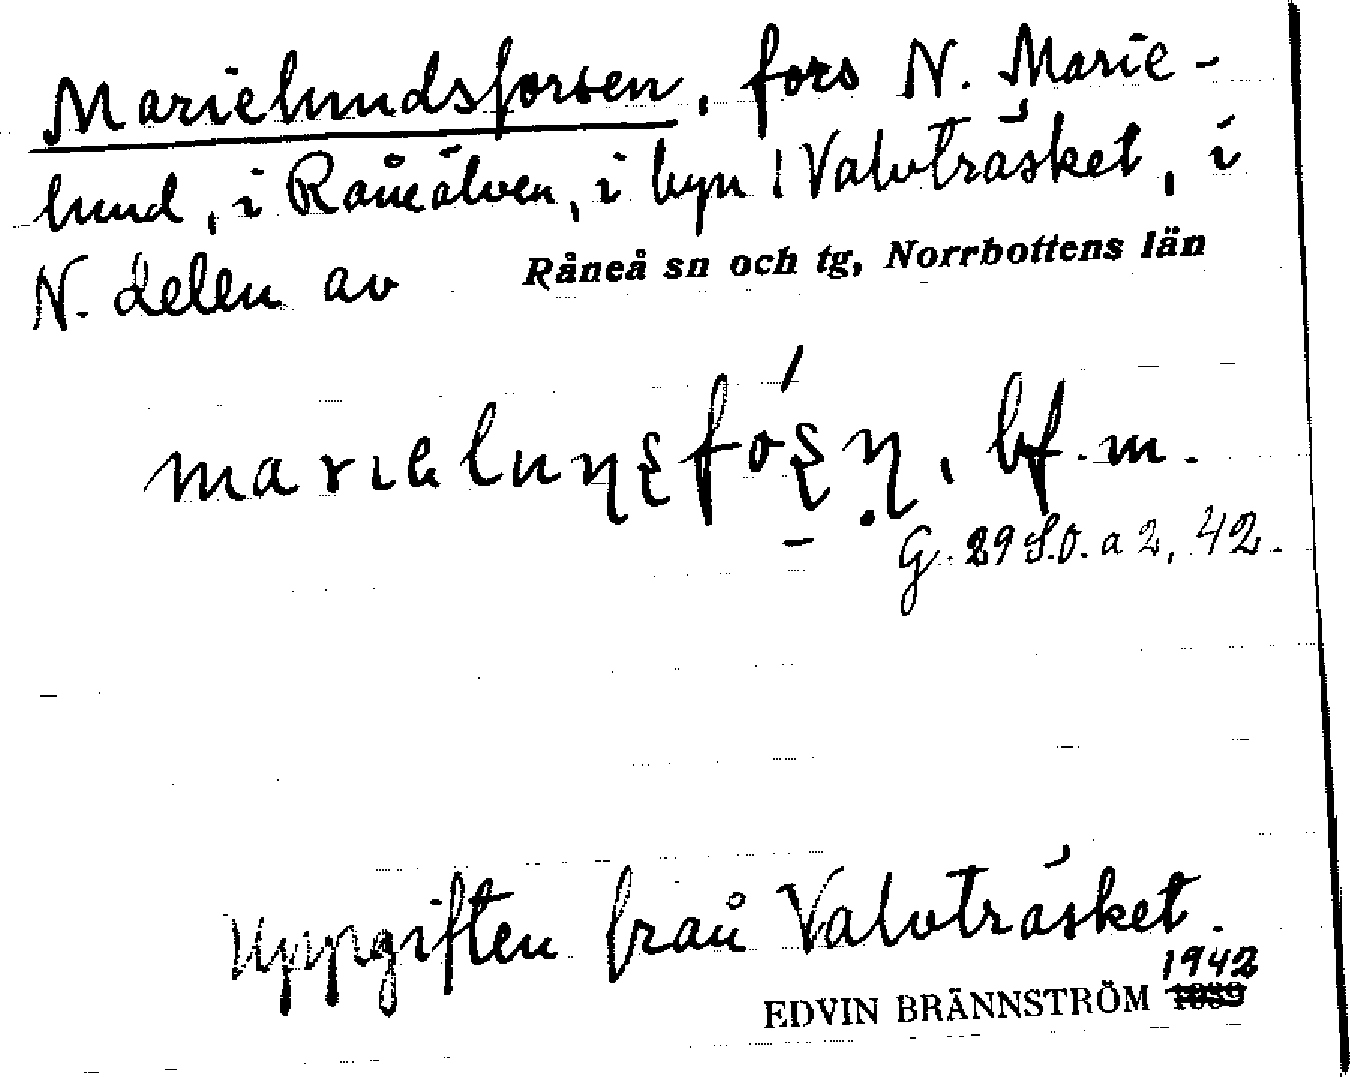 Marielundsforsen, fors N. Marie-
lund, i Råneälven, i byn Valvträsket, i
N. delen av Råneå sn och tg, Norrbottens län
bf. m.
G. 29 S.O. a 2, 42.
Uppgiften från Valvträsket.
1942
EDVIN BRÄNNSTRÖM 1939